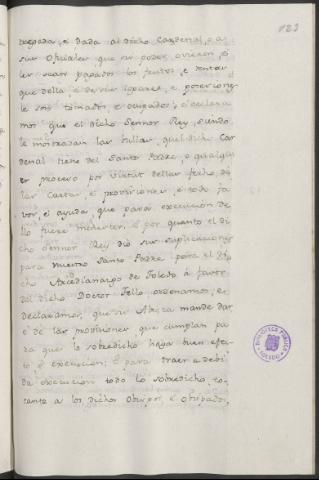 123
tregada, e dada al dicho Cardenal, o a
sus Oficiales que su poder ovieren, e
les sean pagados los frutos, e rentas
que della, e de sus logares, e posesiones
le son tomados, e ocupados; e declara
mos que el dicho Sennor Rey, siendo
le mostradas las bullas, quel dicho Car
denal tiene del Santo Padre, o qualquier
proceso por virtut dellas fecho dé
las Cartas, e provisiones, e todo fa
vor, e ayudas, que para execucion de
llo fuere menester. E por quanto el di
cho Sennor Rey dió sus suplicaciones
para nuestro Santo Padre para el di
cho Arcedianazgo de Toledo á favor
del dicho Doctor Tello, ordenamos, e
declaramos, que su Alteza mande dar,
e dé las provisiones, que cumplan pa
ra que lo sobredicho haya buen efec
to, e execucion; E para traer a debi
da execucion todo lo sobredicho, to
cante a los dichos Obispos, e Obispados,
BIBLIOTECA PUBLICA
TOLEDO